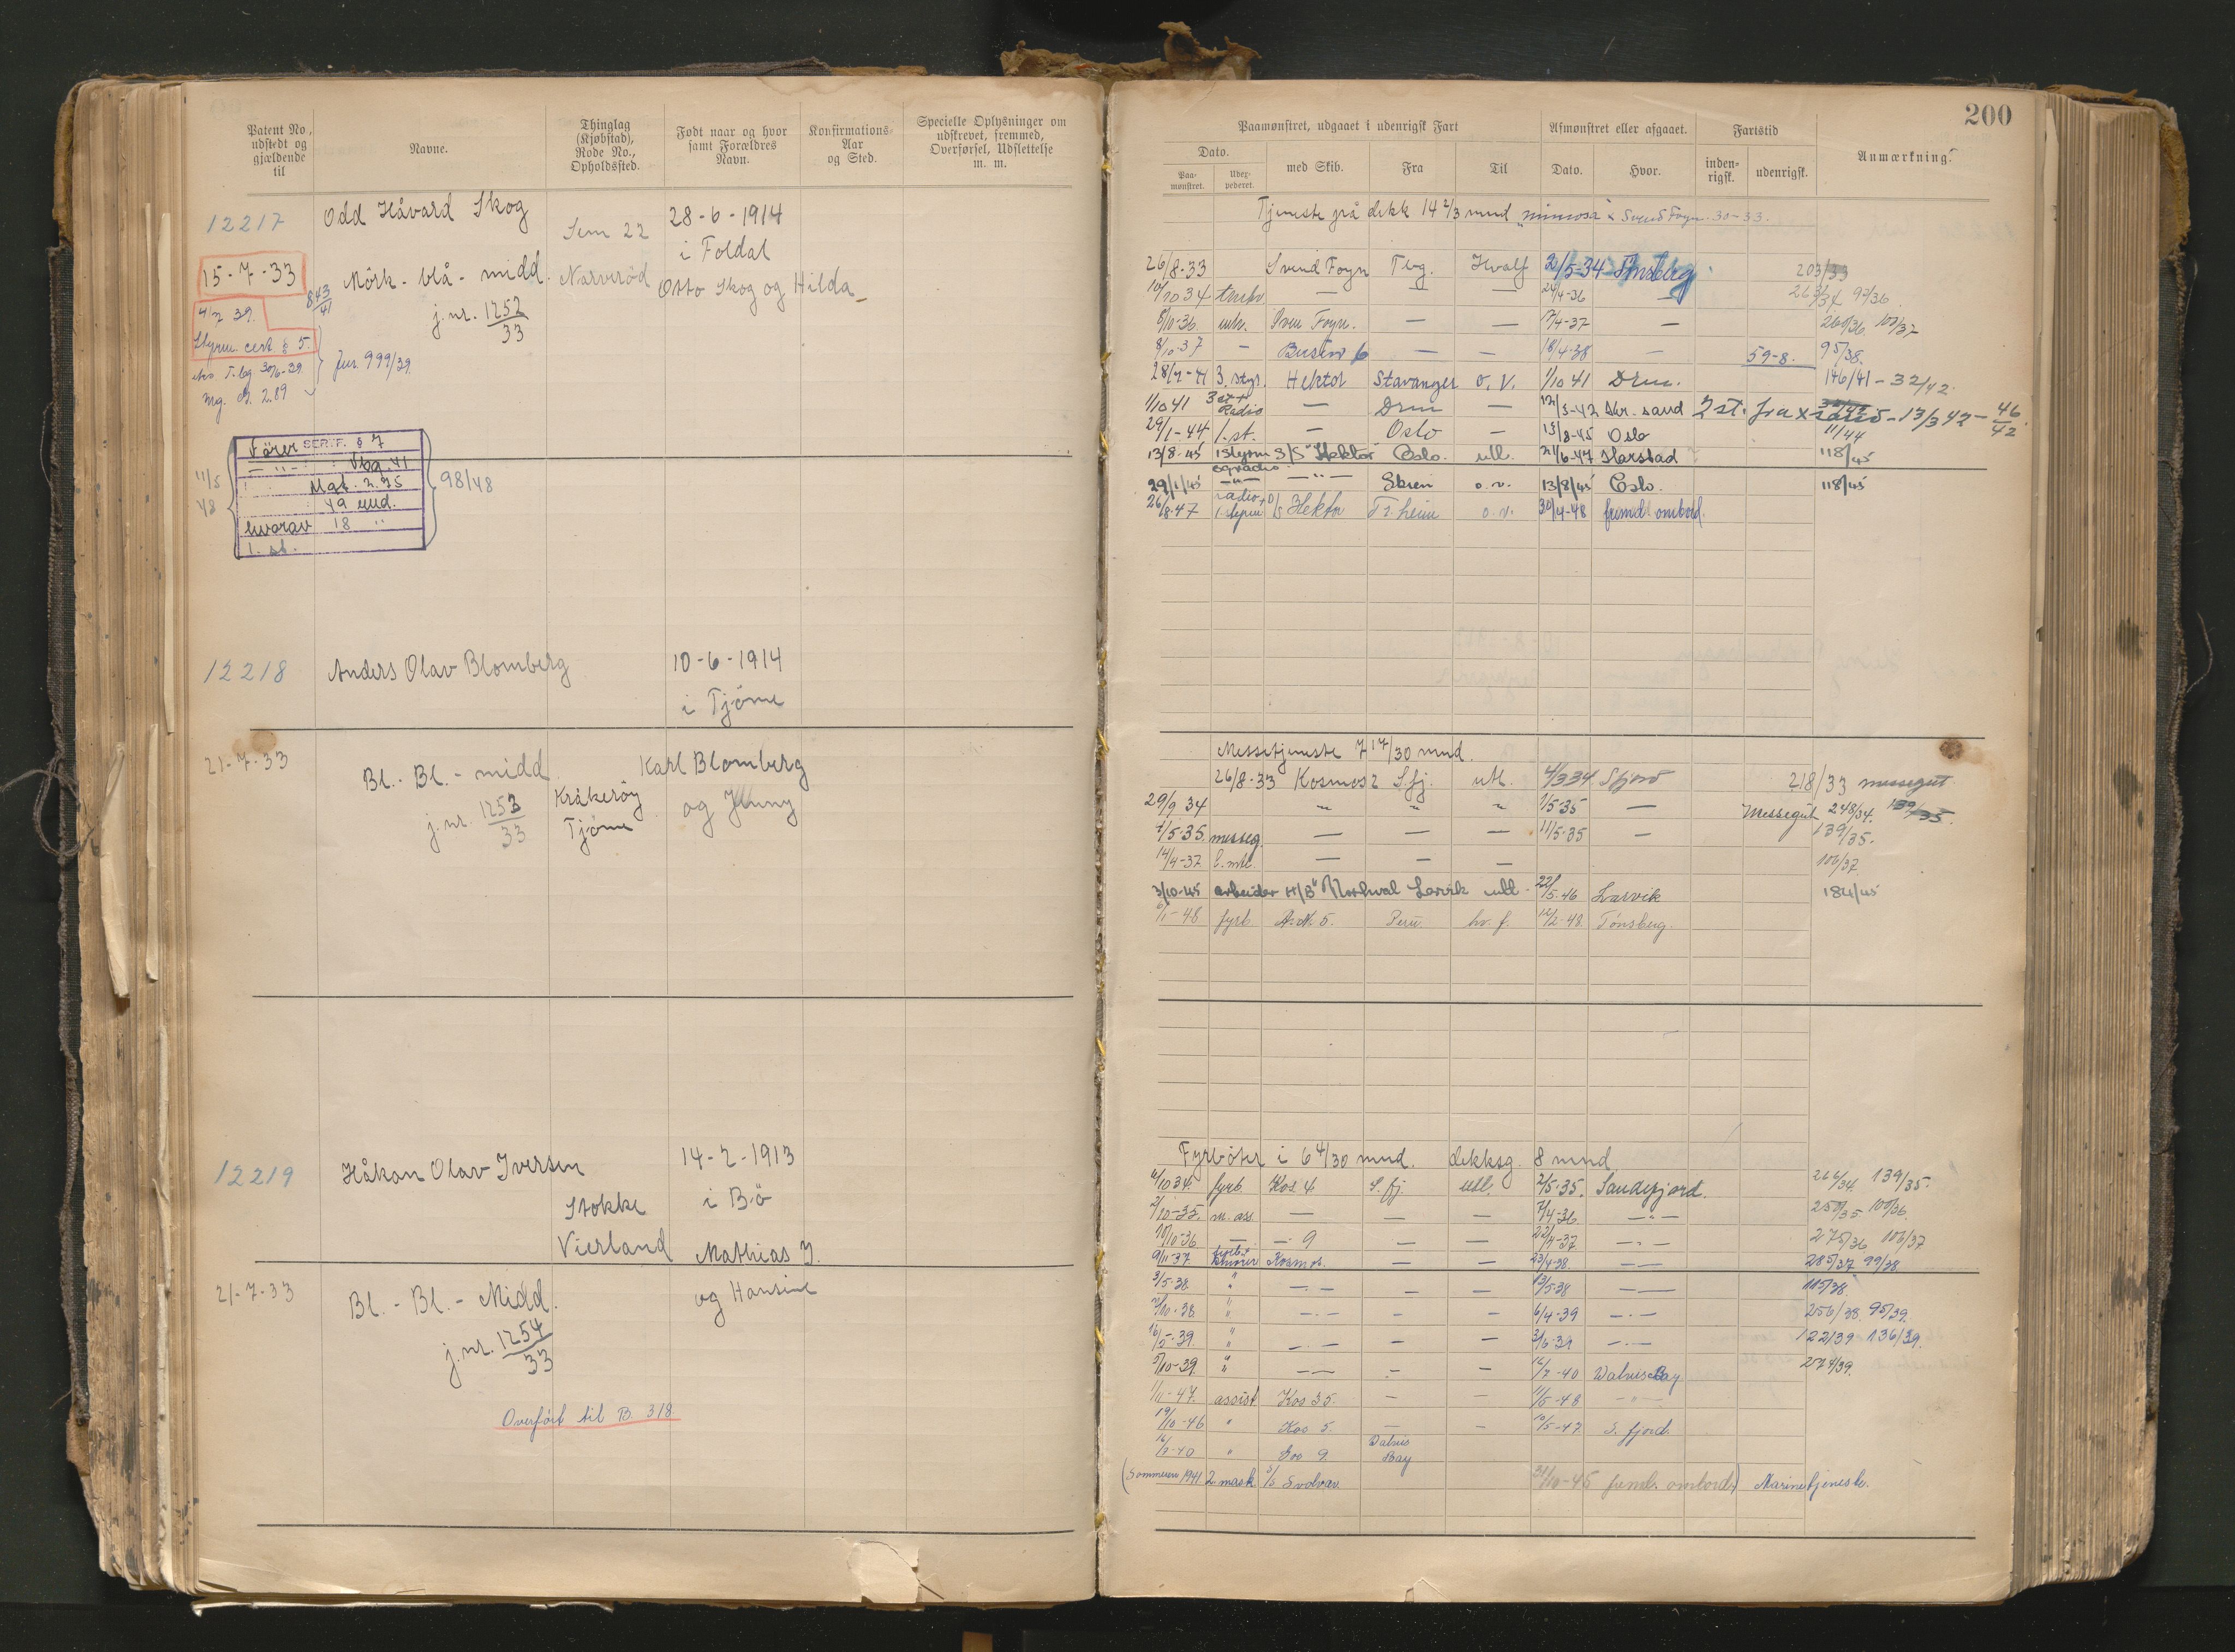 200
Patent No, udstedt og gjældende til
Navne.
Thinglag (Kjøbstad), Rode No., Opholdssted.
Født naar og hvor samt Forældres Navn.
Konfirmations-Aar og Sted.
Specielle Oplysninger om udskrevet, fremmed, Overførsel, Udslettelse m. m.
Paamønstret, udgaaet i udenrigsk Fart
Afmønstret eller afgaaet.
Fartstid
Anmærkning.
Dato.
Paa-mønstret.
Udex-pederet.
med Skib.
Fra
Til
Dato.
Hvor.
inden-rigsk.
udenrigsk.
12217
Odd Håvard Skog
Sem 22
28-6-1914
i Foldal
15-7-33
Mörk - blå - midd.
Narveröd
Otto Skog og Hilda
843/41
j.nr. 1252/33
4/7 39.
Styrm. cert. § 5.
T.bg 30/6-39
Jur. 999/39
mg. 2.89
Fører SERTF. § 7
— " — Tbg. 41
Mgl. 2.75
49 mnd.
hvorav 18 "
1. st.
11/5 48
98/48
Tjeneste på dekk 14 2/3 mnd „mimosa" & Svend Foyn 30-33.
26/8-33 Svend Foyn Tbg. Hvalf 2/5-34 Tønsberg 203/33
10/10 34 — — — 24/4-36 — 263/34 97/36
8/10-36 Sven Foyn. — — 7/4-37 — 260/36 103/37
8/10-37 — Busen 6 — — 18/4-38 — 59-8. 95/38.
28/7-41 3. styr. Hektor Stavanger o. v. 1/10 41 Drm. 146/41 - 32/42.
1/10 41 3 st + Radio — Drm — 12/3-42 Kr. sand 2 st. fra 13/3 42 - 46/42
29/1-44 1. st. — Oslo — 13/8-45 Oslo 11/44
13/8-45 1 styrm og radio S/S "Hektor" Oslo. utl. 21/6-47 Harstad 118/45
29/1/45 — " — — " — Skien o. v. 13/8/45 Oslo. 118/45
26/8-47 radio + 1. styrm D/S Hektor Tr.heim o. v. 30/4-48 fremd. ombord.
12218
Anders Olav Blomberg
10-6-1914
i Tjöme
21-7-33
Bl. - Bl. - midd
Karl Blomberg
j.nr. 1253/33
Kråkeröy
Tjöme
og Jenny
Messetjeneste 7 17/30 mnd.
26/8-33 Kosmos 2 S.fj. utl. 4/3 34 Sfjord 218/33 messegut
29/9 34 " " " 1/5-35 — Messegut 248/34. 139/35.
1/5-35 messeg. — — — 11/5-35 — 139/35.
14/4-37 — — — 106/37
3/10-45 arbeider H/B "Norhval Larvik utl. 22/5-46 Larvik 184/45
6/1-48 fyrb. A.N. 5. Peru hv. f. 12/2-48 Tønsberg.
12219
Håkon Olav Iversen
14-2-1913
Stokke
i Bö
Vierland
Mathias I.
21-7-33
Bl. - Bl. - Midd.
og Hansine
j.nr. 1254/33
Overført til B. 318
Fyrböter i 6 4/30 mnd. dekksg. 8 mnd.
6/10 34. fyrb. Kos 4 S.fj. utl. 2/5-35. Sandefjord. 266/34. 139/35.
2/10-35. m. ass. — — — 7/4-36 — " — 250/35 100/36.
10/10-36 — — 9 — — 22/4-37 — " — 275/36 106/37
9/11-37 Kosmos. — — 23/4-38. — — 285/37 99/38.
3/5-38 " — . — — — 13/5-38 — — 115/38.
2/10-38 " — . — — — 6/4-39 — . — 256/38. 95/39.
16/5-39. " — . — — — 3/6-39 — . — 122/39 136/39.
5/10-39 " — — — — 16/7-40 Walvis Bay 274/39.
1/11-47. assist Kos 35. — — 11/5-48 — " —
19/10-46 " Kos 5. — — 10/5-47 S. fjord.
16/7-40 " Kos 9. Walvis Bay
(Sommeren 1941 2 mask. S/S Svolvær. 31/10-45 fremd. ombord.) Marinetjeneste.